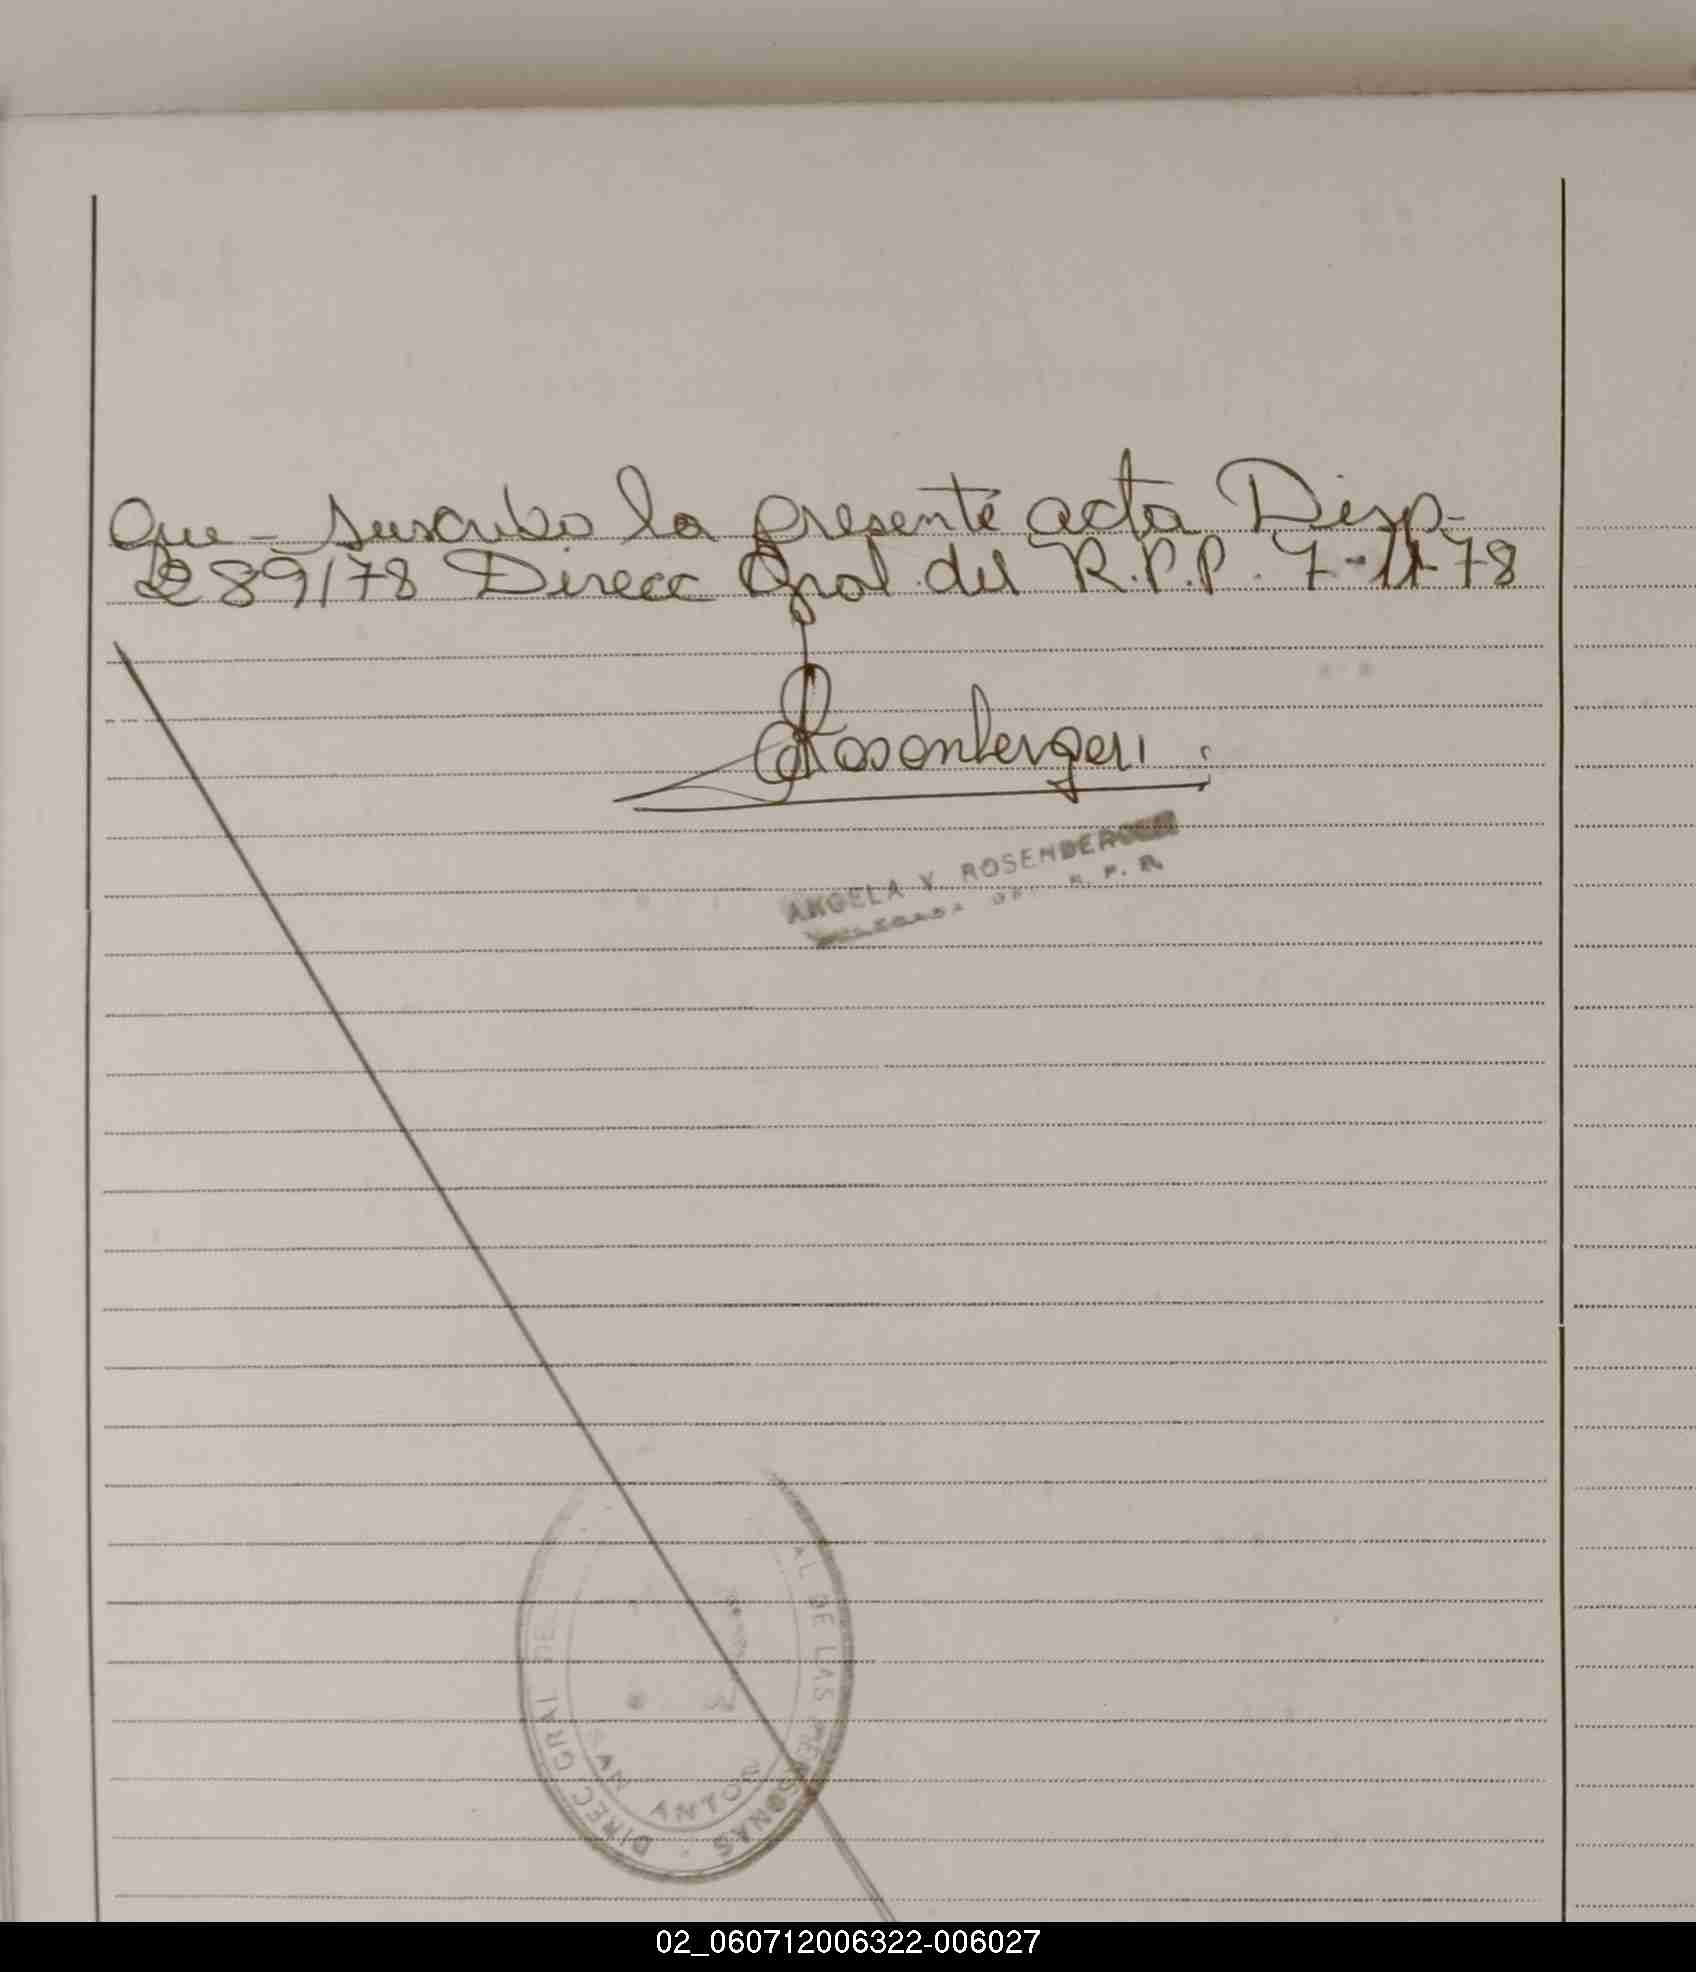 Que - suscribo la presente acta Disp-
289/78 Direcc Gral. del R.P.P. 7-11-78
Rosenberger
ANGELA V. ROSENBERGER
R. P. P.
DIREC. GRAL DEL AL DE LAS PERSONAS
SAN ANTON
02_060712006322-006027